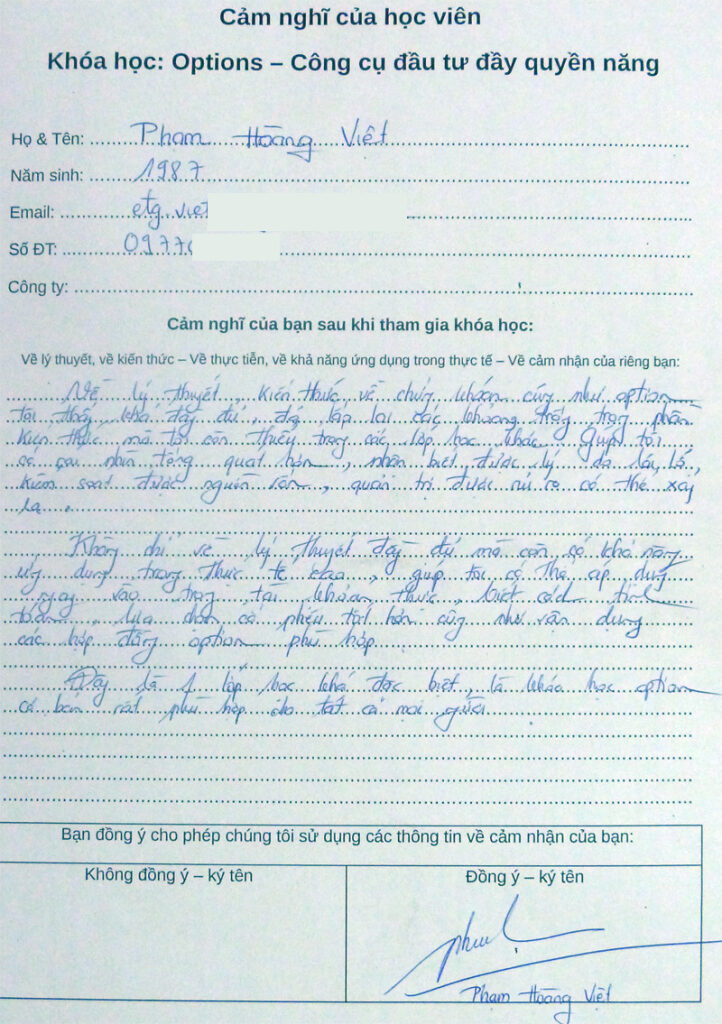 Cảm nghĩ của học viên
Khóa học: Options – Công cụ đầu tư đầy quyền năng
Họ & Tên: Phạm Hoàng Việt
Năm sinh: 1987
Email: etg.viet
Số ĐT: 0977
Công ty:
Cảm nghĩ của bạn sau khi tham gia khóa học:
Về lý thuyết, về kiến thức – Về thực tiễn, về khả năng ứng dụng trong thực tế – Về cảm nhận của riêng bạn:
Về lý thuyết, kiến thức về chứng khoán cũng như option
tôi thấy khá đầy đủ, đã lấp lại các khoảng trống trong phần
kiến thức mà tôi còn thiếu trong các lớp học khác. Giúp tôi
có cái nhìn tổng quát hơn, nhận biết được lý do lãi, lỗ,
kiểm soát được nguồn vốn, quản trị được rủi ro có thể xảy
ra.
Không chỉ về lý thuyết đầy đủ mà còn có khả năng
ứng dụng trong thực tế cao, giúp tôi có thể áp dụng
ngay vào trong tài khoản thực, biết cách tính
toán, lựa chọn cổ phiếu tốt hơn cũng như vận dụng
các hợp đồng option phù hợp.
Đây là 1 lớp học khá đặc biệt, là khóa học option
cơ bản rất phù hợp cho tất cả mọi người.
Bạn đồng ý cho phép chúng tôi sử dụng các thông tin về cảm nhận của bạn:
Không đồng ý – ký tên
Đồng ý – ký tên
Phạm Hoàng Việt